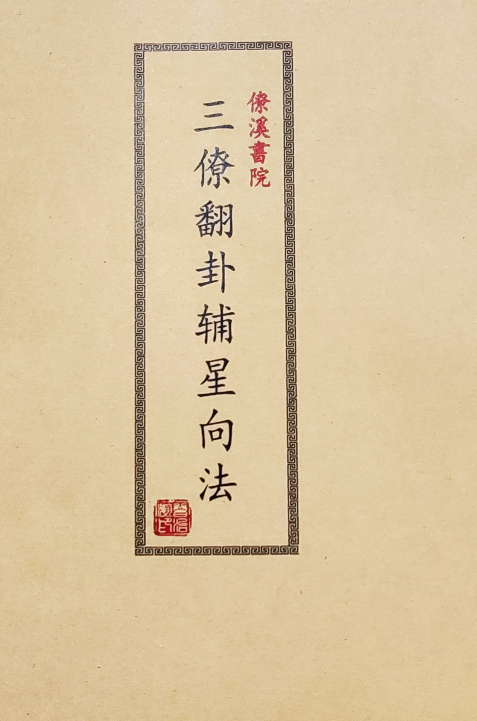 僚溪書院
三僚翻卦辅星向法